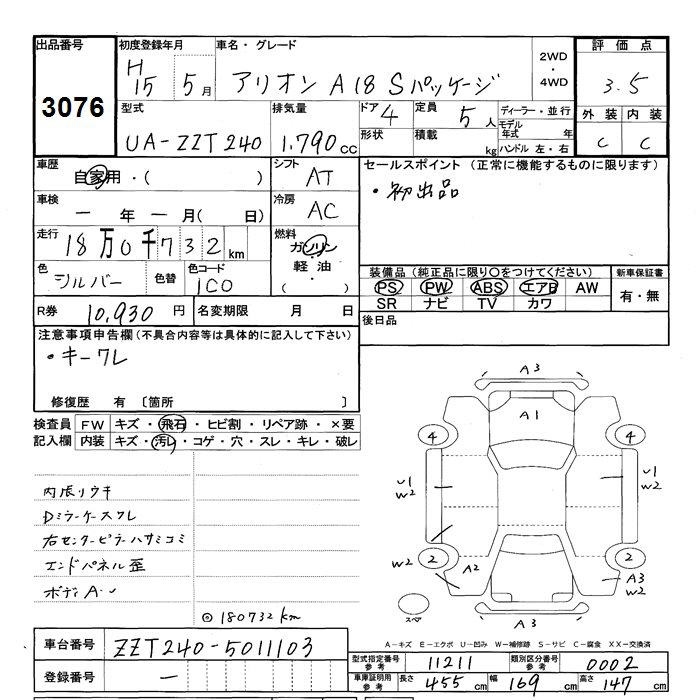 出品番号
3076
初度登録年月
H
15 5月
車名・グレード
アリオン A18 Sパッケージ
2WD
・
4WD
評価点
3.5
外装 内装
C C
型式
UA-ZZT240
排気量
1.790cc
ドア 4
定員
5人
形状
積載
kg
ディーラー・並行
モデル
年式 年
ハンドル 左・右
車歴
自家用・( )
シフト
AT
セールスポイント (正常に機能するものに限ります)
・初出品
車検
一年一月( 日)
冷房
AC
走行
18万0千732km
燃料
ガソリン
軽油・
( )
色
シルバー
色替
色コード
1C0
装備品(純正品に限り○をつけてください)
PS PW ABS エアB AW
SR ナビ TV カワ
新車保証書
有・無
R券 10,930 円
名変期限 月 日
後日品
注意事項申告欄(不具合内容等は具体的に記入して下さい)
・キーワレ
修復歴 有 〔箇所 〕
検査員 FW キズ・飛石・ヒビ割・リペア跡・×要
記入欄 内装 キズ・汚レ・コゲ・穴・スレ・キレ・破レ
内張リウキ
Dミラーケースワレ
右センターピラーハサミコミ
エンドパネル歪
ボディA・U
◎180732km
A3
A1
4 4
U1
W2
U1
W2
W2
2 2
A2
A3
W2
スペア
A3
A-キズ E-エクボ U-凹み W-補修跡 S-サビ C-腐食 XX-交換済
車台番号 ZZT240-5011103
登録番号 —
型式指定番号
参考
11211
類別区分番号
参考
0002
車庫証明用
参考
長さ 455cm 幅 169cm 高さ 147cm